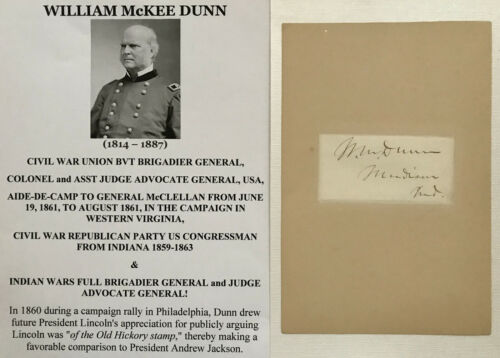 WILLIAM McKEE DUNN
(1814 – 1887)
CIVIL WAR UNION BVT BRIGADIER GENERAL,
COLONEL and ASST JUDGE ADVOCATE GENERAL, USA,
AIDE-DE-CAMP TO GENERAL McCLELLAN FROM JUNE
19, 1861, TO AUGUST 1861, IN THE CAMPAIGN IN
WESTERN VIRGINIA,
CIVIL WAR REPUBLICAN PARTY US CONGRESSMAN
FROM INDIANA 1859-1863
&
INDIAN WARS FULL BRIGADIER GENERAL and JUDGE
ADVOCATE GENERAL!
In 1860 during a campaign rally in Philadelphia, Dunn drew
future President Lincoln's appreciation for publicly arguing
Lincoln was "of the Old Hickory stamp," thereby making a
favorable comparison to President Andrew Jackson.
W. M. Dunn
Madison
Ind.